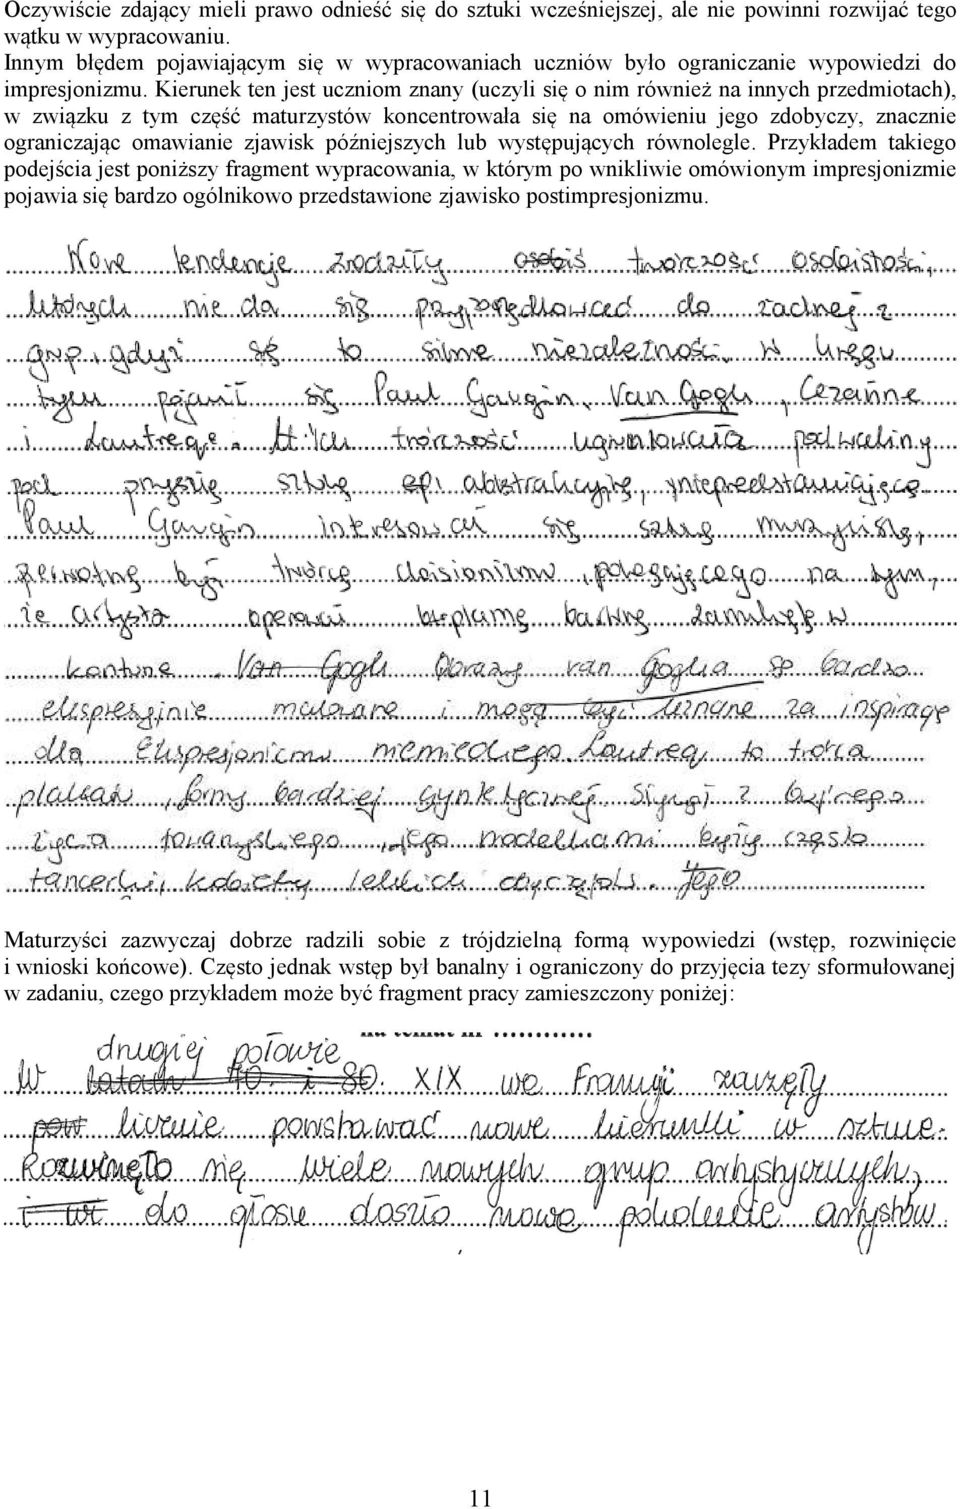 Oczywiście zdający mieli prawo odnieść się do sztuki wcześniejszej, ale nie powinni rozwijać tego
wątku w wypracowaniu.
Innym błędem pojawiającym się w wypracowaniach uczniów było ograniczanie wypowiedzi do
impresjonizmu. Kierunek ten jest uczniom znany (uczyli się o nim również na innych przedmiotach),
w związku z tym część maturzystów koncentrowała się na omówieniu jego zdobyczy, znacznie
ograniczając omawianie zjawisk późniejszych lub występujących równolegle. Przykładem takiego
podejścia jest poniższy fragment wypracowania, w którym po wnikliwie omówionym impresjonizmie
pojawia się bardzo ogólnikowo przedstawione zjawisko postimpresjonizmu.
Nowe tendencje zrodziły osobiś twórczość osobistości,
których nie da się przyporządkować do żadnej z
grup, gdyż są to silne niezależności. W kręgu
tym pojawił się Paul Gaugin, Van Gogh, Cezanne
i Lautreqe. Ich twórczość ugruntowała podwaliny
pod przyszłą sztukę abstrakcyjną, nieprzedstawiającą
Paul Gaugin interesował się sztuką murzyńską,
pierwotną był twórcą cloisionizmu, polegającego na tym,
że artysta operował plamą barwną zamkniętą w
konturze. Van Gogh Obrazy van Gogha są bardzo
ekspresyjnie malowane i mogą być uznane za inspirację
dla Ekspresjonizmu niemieckiego. Lautreq to twórca
plakatów, formy bardziej syntetycznej
życia towarzyskiego, jego modelkami były często
tancerki, kobiety lekkich obyczajów. Jego
Maturzyści zazwyczaj dobrze radzili sobie z trójdzielną formą wypowiedzi (wstęp, rozwinięcie
i wnioski końcowe). Często jednak wstęp był banalny i ograniczony do przyjęcia tezy sformułowanej
w zadaniu, czego przykładem może być fragment pracy zamieszczony poniżej:
drugiej połowie
W latach 70. i 80. XIX we Francji zaczęły
pow licznie powstawać nowe kierunki w sztuce.
Rozwinęło się wiele nowych grup artystycznych,
i we do głosu doszło nowe pokolenie artystów
11